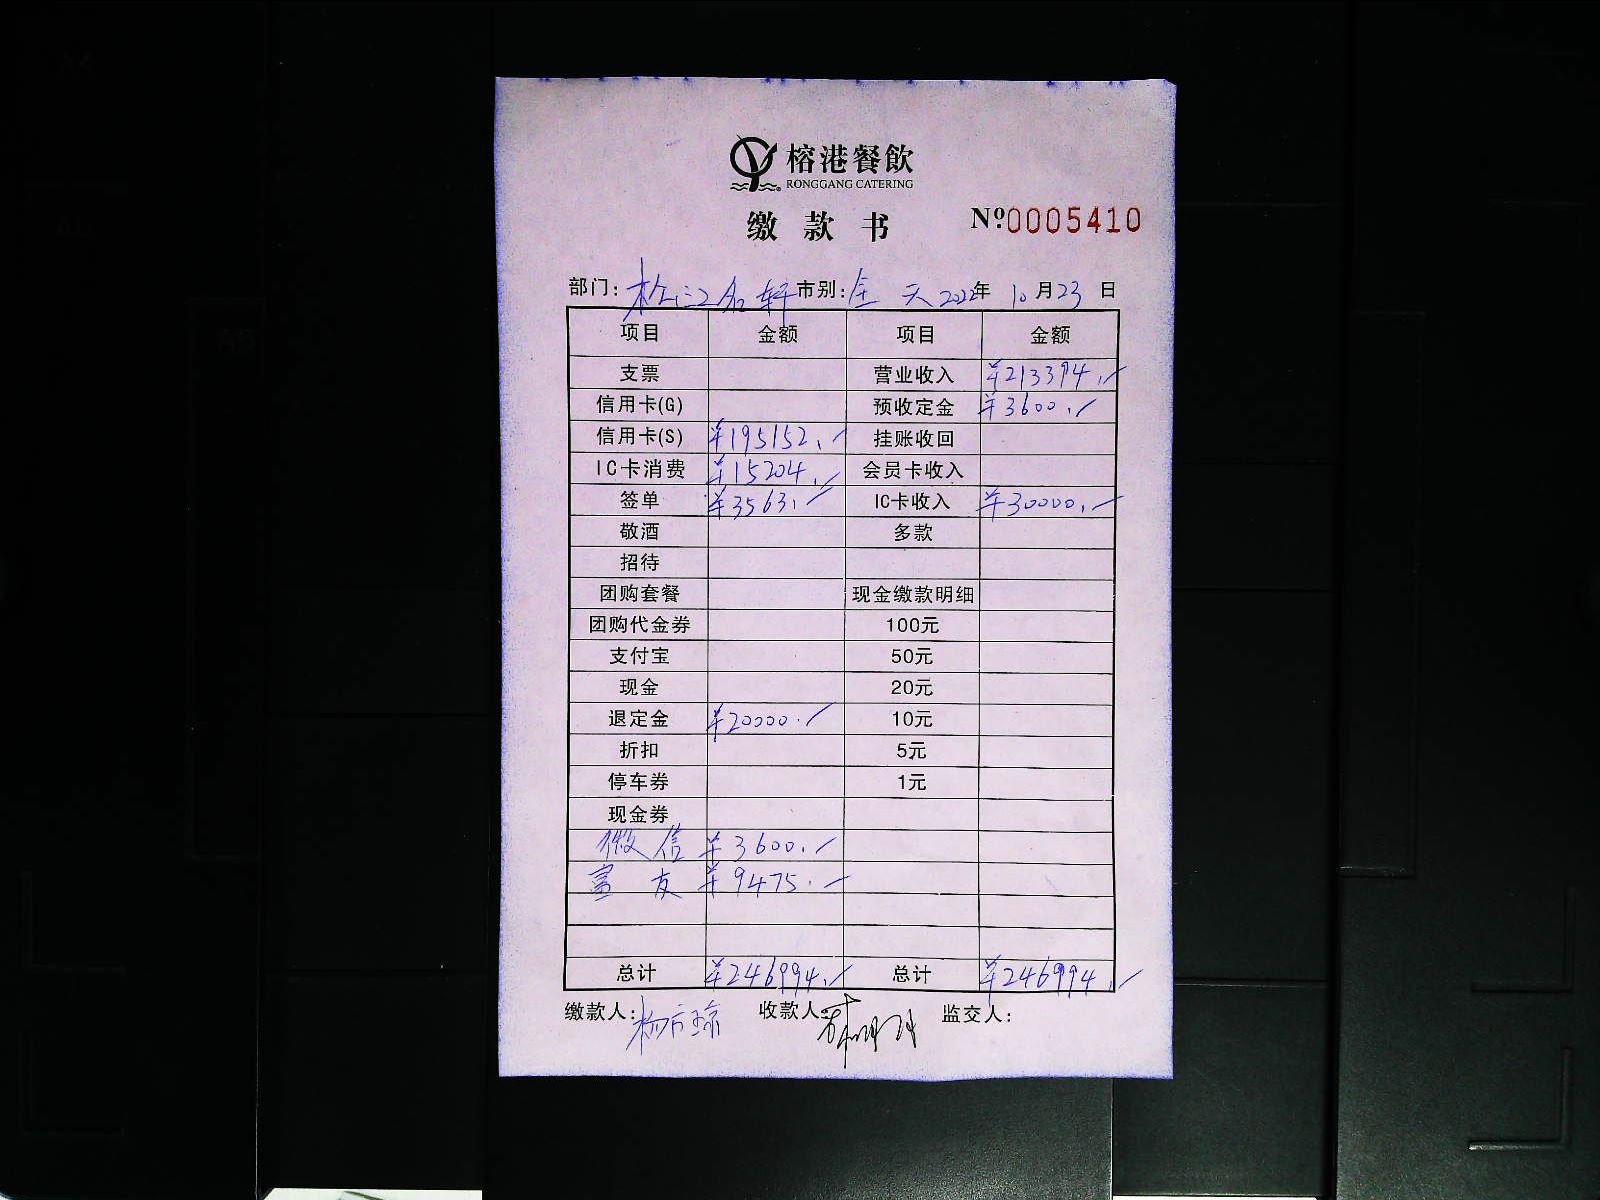 榕港餐飲
RONGGANG CATERING
缴款书 Nº:0005410
部门: 松江名轩 市别: 全天 2022年 10月23日
项目 金额 项目 金额
支票 营业收入 ¥213394.
信用卡(G) 预收定金 ¥3600.
信用卡(S) ¥195152. 挂账收回
IC卡消费 ¥15204. 会员卡收入
签单 ¥3563. IC卡收入 ¥30000.
敬酒 多款
招待
团购套餐 现金缴款明细
团购代金券 100元
支付宝 50元
现金 20元
退定金 ¥20000. 10元
折扣 5元
停车券 1元
现金券
微信 ¥3600.
富友 ¥9475.
总计 ¥246994. 总计 ¥246994.
缴款人: 收款人: 监交人: